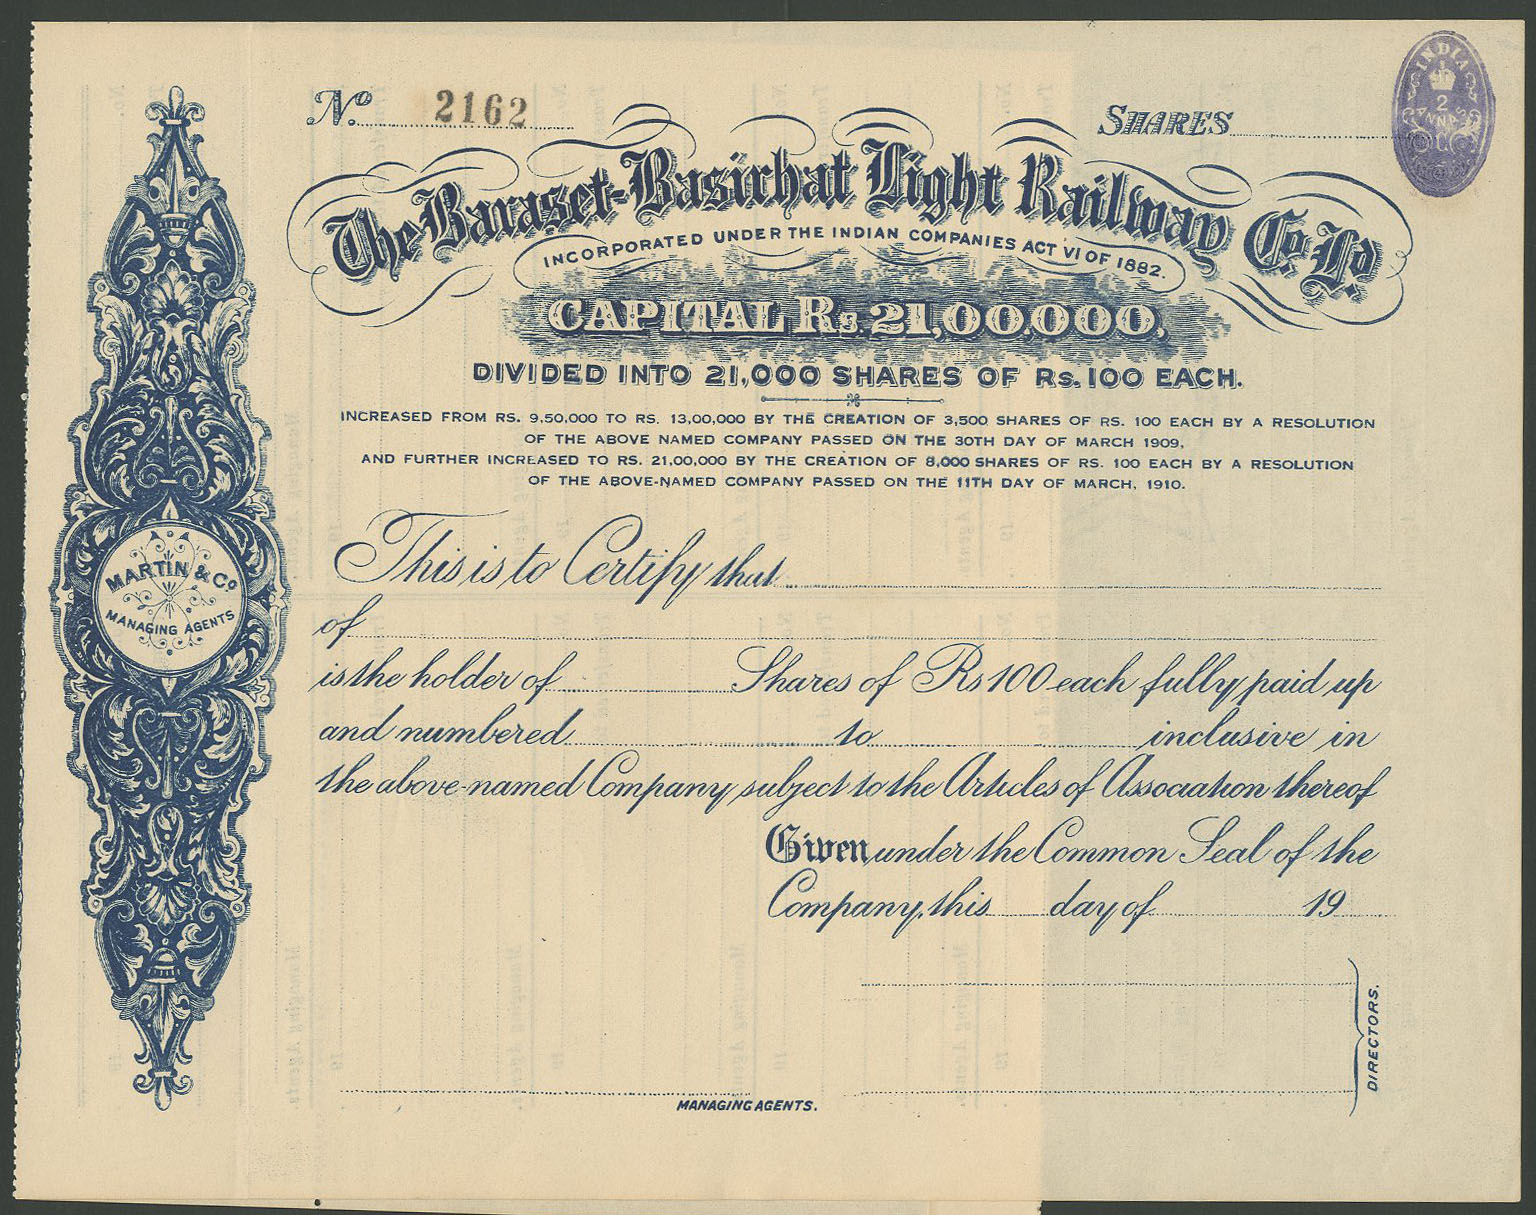 No. 2162 SHARES
INDIA
2
ANNAS
The Baraset-Basirhat Light Railway Co. Ld.
INCORPORATED UNDER THE INDIAN COMPANIES ACT VI OF 1882.
CAPITAL Rs. 21,00,000,
DIVIDED INTO 21,000 SHARES OF Rs. 100 EACH.
INCREASED FROM RS. 9,50,000 TO RS. 13,00,000 BY THE CREATION OF 3,500 SHARES OF RS. 100 EACH BY A RESOLUTION
OF THE ABOVE NAMED COMPANY PASSED ON THE 30TH DAY OF MARCH 1909,
AND FURTHER INCREASED TO RS. 21,00,000 BY THE CREATION OF 8,000 SHARES OF RS. 100 EACH BY A RESOLUTION
OF THE ABOVE-NAMED COMPANY PASSED ON THE 11TH DAY OF MARCH, 1910.
MARTIN & Co
MANAGING AGENTS
This is to Certify that
of
is the holder of Shares of Rs 100 each fully paid up
and numbered to inclusive in
the above-named Company subject to the Articles of Association thereof
Given under the Common Seal of the
Company, this day of 19
DIRECTORS.
MANAGING AGENTS.